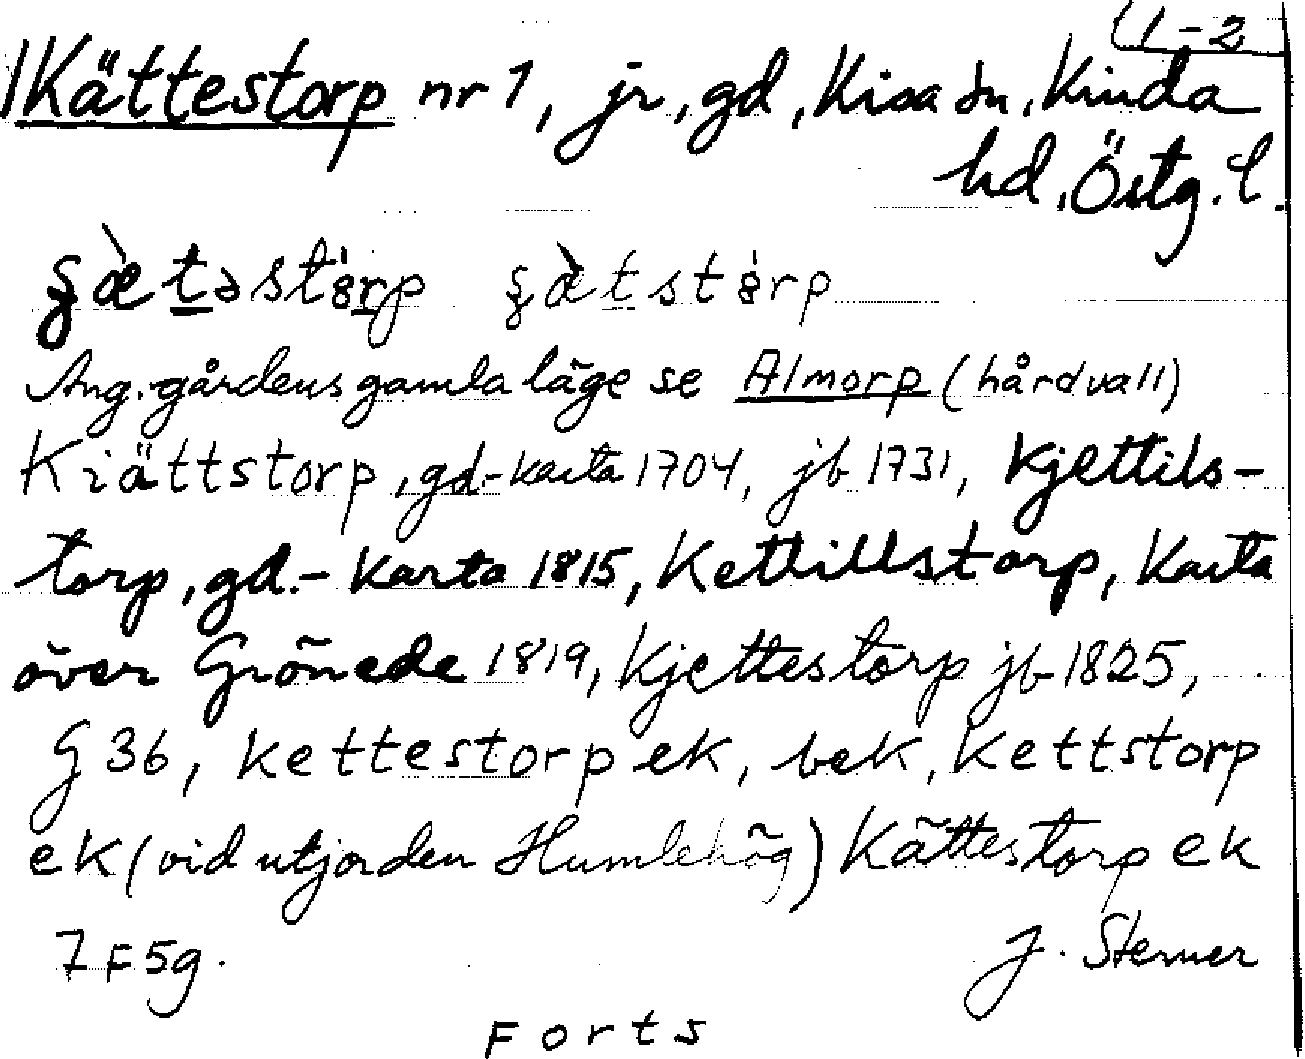 1-2
Kättestorp nr 1, jr, gd, Kisa sn, Kinda
hd, Östg. l.
Ang. gårdens gamla läge se Almorp (hårdvall)
Kiättstorp, gd-karta 1704, jb 1731, Kjettils-
torp, gd.-karta 1815, Kettillstorp, Karta
över Grönede 1819, Kjettestorp jb 1825,
G 36, Kettestorp ek, bek, Kettstorp
ek (vid utjorden Humlehög) Kättestorp ek
7F5g.
J. Sterner
Forts